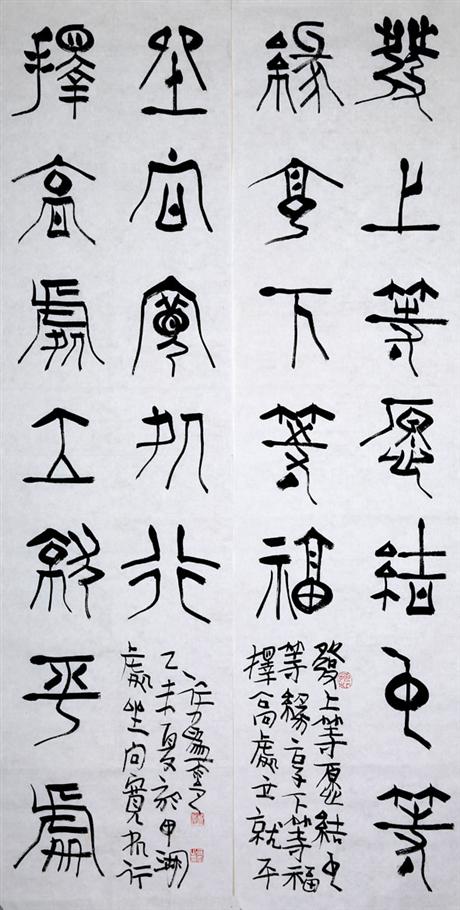 發上等愿結中等
緣享下等福
發上等愿結中
等緣享下等福
擇高處立就平
擇高處立就平處
坐向寬處行
處坐向寬處行
乙未夏於